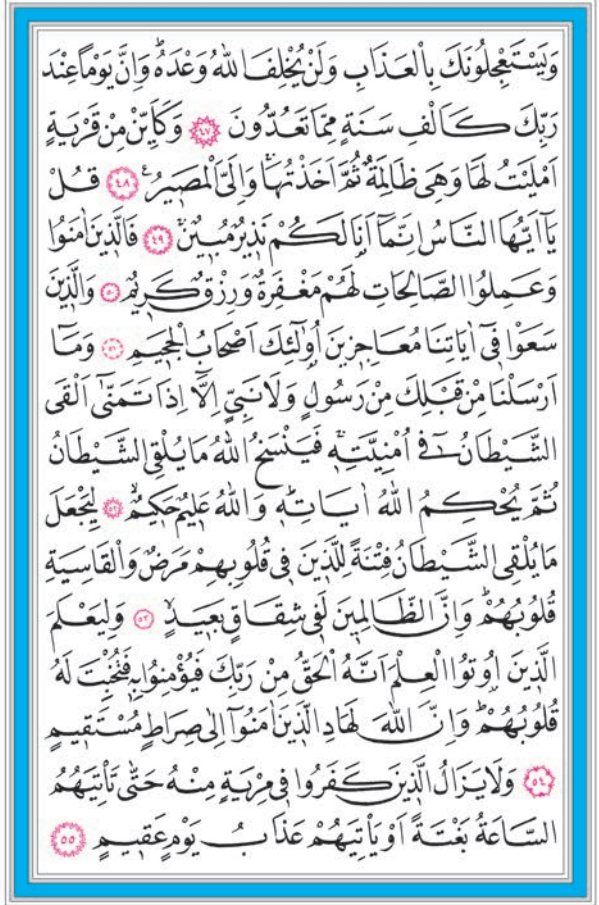 وَيَسْتَعْجِلُونَكَ بِالْعَذَابِ وَلَنْ يُخْلِفَ اللّٰهُ وَعْدَهُۜ وَاِنَّ يَوْمًا عِنْدَ
رَبِّكَ كَاَلْفِ سَنَةٍ مِمَّا تَعُدُّونَ ﴿٤٧﴾ وَكَاَيِّنْ مِنْ قَرْيَةٍ
اَمْلَيْتُ لَهَا وَهِيَ ظَالِمَةٌ ثُمَّ اَخَذْتُهَاۚ وَاِلَيَّ الْمَصِيرُ۟ ﴿٤٨﴾ قُلْ
يَٓا اَيُّهَا النَّاسُ اِنَّمَٓا اَنَا۬ لَكُمْ نَذِيرٌ مُبِينٌۚ ﴿٤٩﴾ فَالَّذِينَ اٰمَنُوا
وَعَمِلُوا الصَّالِحَاتِ لَهُمْ مَغْفِرَةٌ وَرِزْقٌ كَرِيمٌ ﴿٥٠﴾ وَالَّذِينَ
سَعَوْا فِٓي اٰيَاتِنَا مُعَاجِزِينَ اُو۬لٰٓئِكَ اَصْحَابُ الْجَحِيمِ ﴿٥١﴾ وَمَٓا
اَرْسَلْنَا مِنْ قَبْلِكَ مِنْ رَسُولٍ وَلَا نَبِيٍّ اِلَّٓا اِذَا تَمَنّٰٓى اَلْقَى
الشَّيْطَانُ فِٓي اُمْنِيَّتِهِۚ فَيَنْسَخُ اللّٰهُ مَا يُلْقِي الشَّيْطَانُ
ثُمَّ يُحْكِمُ اللّٰهُ اٰيَاتِهِۜ وَاللّٰهُ عَلِيمٌ حَكِيمٌۙ ﴿٥٢﴾ لِيَجْعَلَ
مَا يُلْقِي الشَّيْطَانُ فِتْنَةً لِلَّذِينَ فِي قُلُوبِهِمْ مَرَضٌ وَالْقَاسِيَةِ
قُلُوبُهُمْۜ وَاِنَّ الظَّالِمِينَ لَفِي شِقَاقٍ بَعِيدٍۙ ﴿٥٣﴾ وَلِيَعْلَمَ
الَّذِينَ اُو۫تُوا الْعِلْمَ اَنَّهُ الْحَقُّ مِنْ رَبِّكَ فَيُؤْمِنُوا بِهِ فَتُخْبِتَ لَهُ
قُلُوبُهُمْۜ وَاِنَّ اللّٰهَ لَهَادِ الَّذِينَ اٰمَنُٓوا اِلٰى صِرَاطٍ مُسْتَقِيمٍ
﴿٥٤﴾ وَلَا يَزَالُ الَّذِينَ كَفَرُوا فِي مِرْيَةٍ مِنْهُ حَتّٰى تَأْتِيَهُمُ
السَّاعَةُ بَغْتَةً اَوْ يَأْتِيَهُمْ عَذَابُ يَوْمٍ عَقِيمٍ ﴿٥٥﴾